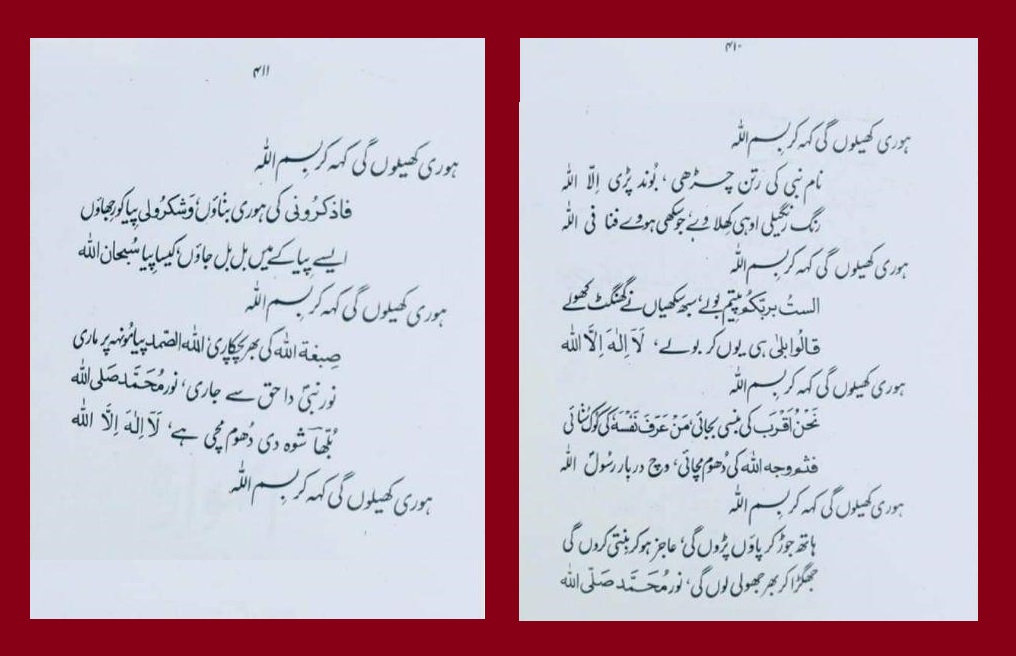 ۴۱۰
ہوری کھیلوں گی کہہ کر بسم اللہ
نام نبی کی رتن چڑھی ، بُوند پڑی اِلّا اللہ
رنگ رنگیلی اوہی کھلاوے، جو سکھی ہووے فنا فی اللہ
ہوری کھیلوں گی کہہ کر بسم اللہ
الستُ بربکم پیتم بولے، سبھ سکھیاں نے گھنگٹ کھولے
قالوا بلیٰ ہی یوں کر بولے، لَآ اِلٰہَ اِلَّا اللہ
ہوری کھیلوں گی کہہ کر بسم اللہ
نَحْنُ اَقْرَب کی بنسی بجائی، مَنْ عَرَفَ نَفْسَہٗ کی کوک سُنائی
فثم وجہ اللہ کی دُھوم مچائی، وچ دربار رسُولؐ اللہ
ہوری کھیلوں گی کہہ کر بسم اللہ
ہاتھ جوڑ کر پاؤں پڑوں گی، عاجز ہو کر بنتی کروں گی
جھگڑا کر بھر جھولی لوں گی، نور مُحَمَّد صَلّی اللہ
۴۱۱
ہوری کھیلوں گی کہہ کر بسم اللہ
فاذکرُونی کی ہوری بناؤں، وَشکرُولی پیا کو رجھاؤں
ایسے پیا کے میں بل بل جاؤں، کیسا پیا سُبحان اللہ
ہوری کھیلوں گی کہہ کر بسم اللہ
صِبغۃ اللہ کی بھر پچکاری، اللہ الصّمد پیا مُونہہ پر ماری
نور نبیؐ دا حق سے جاری، نور مُحَمَّد صَلی اللہ
بُلّھا شوہ دی دُھوم مچی ہے، لَآ اِلٰہَ اِلَّا اللہ
ہوری کھیلوں گی کہہ کر بسم اللہ